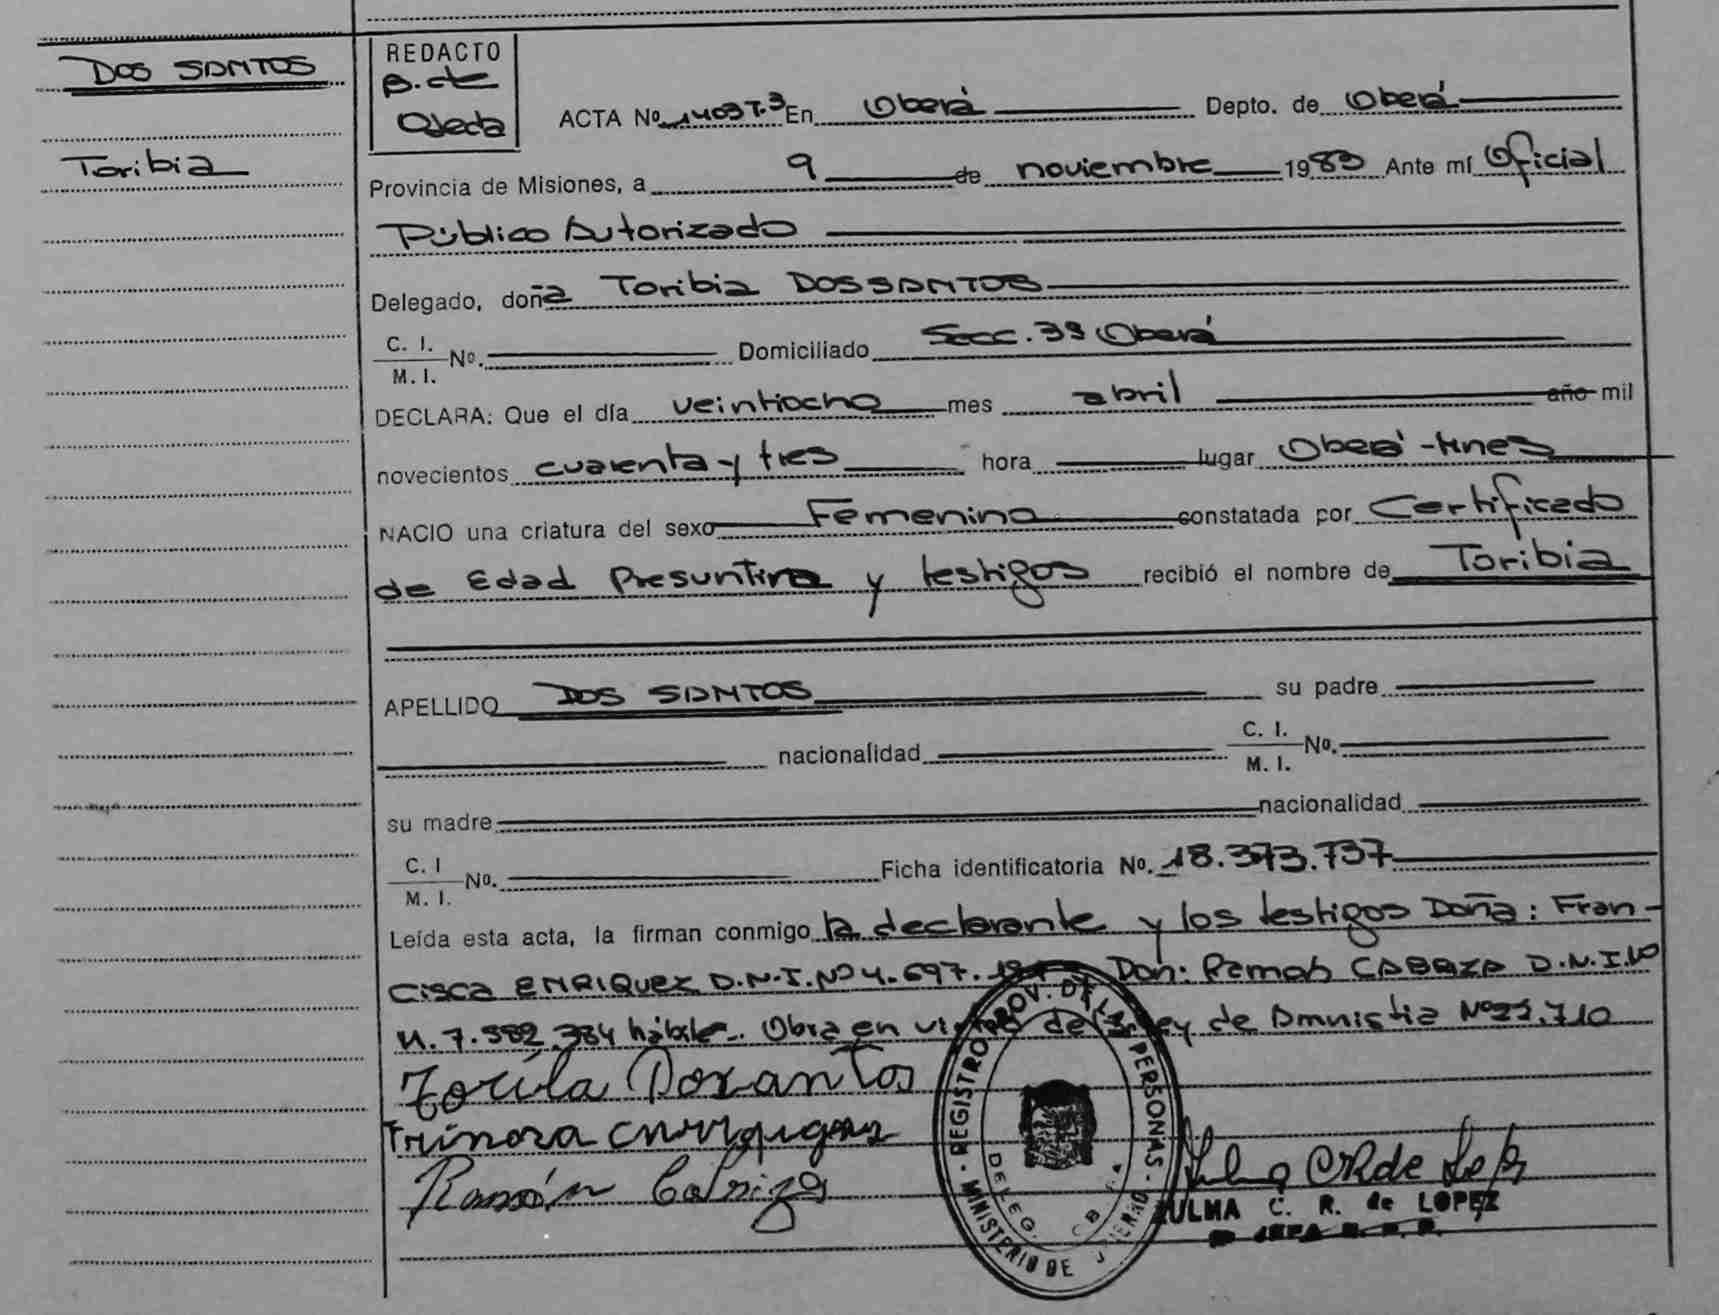 DOS SANTOS
Toribia
REDACTO
B. de
Ojeda
ACTA Nº 1403 T.3 En Oberá Depto. de Oberá
Provincia de Misiones, a 9 de noviembre 1983 Ante mí Oficial
Público Autorizado
Delegado, doña Toribia DOS SANTOS
C. I.
M. I. Nº. Domiciliado Secc. 39 Oberá
DECLARA: Que el día veintiocho mes abril año mil
novecientos cuarenta y tres hora lugar Oberá - Mnes
NACIO una criatura del sexo Femenino constatada por Certificado
de Edad Presuntiva y testigos recibió el nombre de Toribia
APELLIDO DOS SANTOS su padre
nacionalidad C. I.
M. I. Nº.
su madre nacionalidad
C. I
M. I. Nº. Ficha identificatoria Nº. 18.373.737
Leída esta acta, la firman conmigo la declarante y los testigos Doña: Fran-
cisca ENRIQUEZ D.N.I. Nº 4.697. Don: Ramón CABRIZA D.N.I. Nº
M. 7.582.384 hábiles. Obra en virtud de la Ley de Amnistia Nº 22.710
Ramón Cabriza
REGISTRO PROV. DE LAS PERSONAS
MINISTERIO DE
DELEG.
ZULMA C. R. de LOPEZ
JEFA